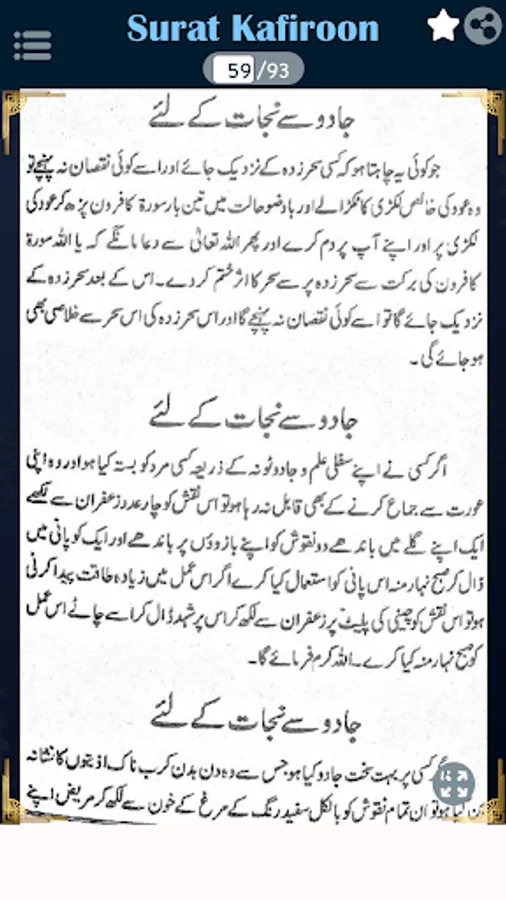 Surat Kafiroon
59/93
جادو سے نجات کے لئے
جو کوئی یہ چاہتا ہو کہ کسی سحر زدہ کے نزدیک جائے اور اسے کوئی نقصان نہ پہنچے تو
وہ عود کی خالص لکڑی کا ٹکڑا لے اور باوضو حالت میں تین بار سورۃ کافرون پڑھ کر عود کی
لکڑی پر اور اپنے آپ پر دم کرے اور پھر اللہ تعالٰی سے دعا مانگے کہ یا اللہ سورۃ
کافرون کی برکت سے سحر زدہ پر سے سحر کا اثر ختم کر دے۔ اس کے بعد سحر زدہ کے
نزدیک جائے گا تو اسے کوئی نقصان نہ پہنچے گا اور اس سحر زدہ کی اس سحر سے خلاصی بھی
ہو جائے گی۔
جادو سے نجات کے لئے
اگر کسی نے اپنے سفلی علم و جادو ٹونہ کے ذریعہ کسی مرد کو بستہ کیا ہو اور وہ اپنی
عورت سے جماع کرنے کے بھی قابل نہ رہا ہو تو اس نقش کو چار عدد زعفران سے لکھے
ایک اپنے گلے میں باندھے دو نقوش کو اپنے بازوؤں پر باندھے اور ایک کو پانی میں
ڈال کر صبح نہار منہ اس پانی کو استعمال کیا کرے اگر اس عمل میں زیادہ طاقت پیدا کرنی
ہو تو اس نقش کو چینی کی پلیٹ پر زعفران سے لکھ کر اس پر شہد ڈال کر اسے چاٹے اس عمل
کو صبح نہار منہ کیا کرے۔ اللہ کرم فرمائے گا۔
جادو سے نجات کے لئے
کسی پر بہت سخت جادو کیا ہو جس سے وہ دن بدن کرب ناک اذیتوں کا نشانہ
ہو تو ان تمام نقوش کو بالکل سفید رنگ کے مرغ کے خون سے لکھ کر مریض اپنے